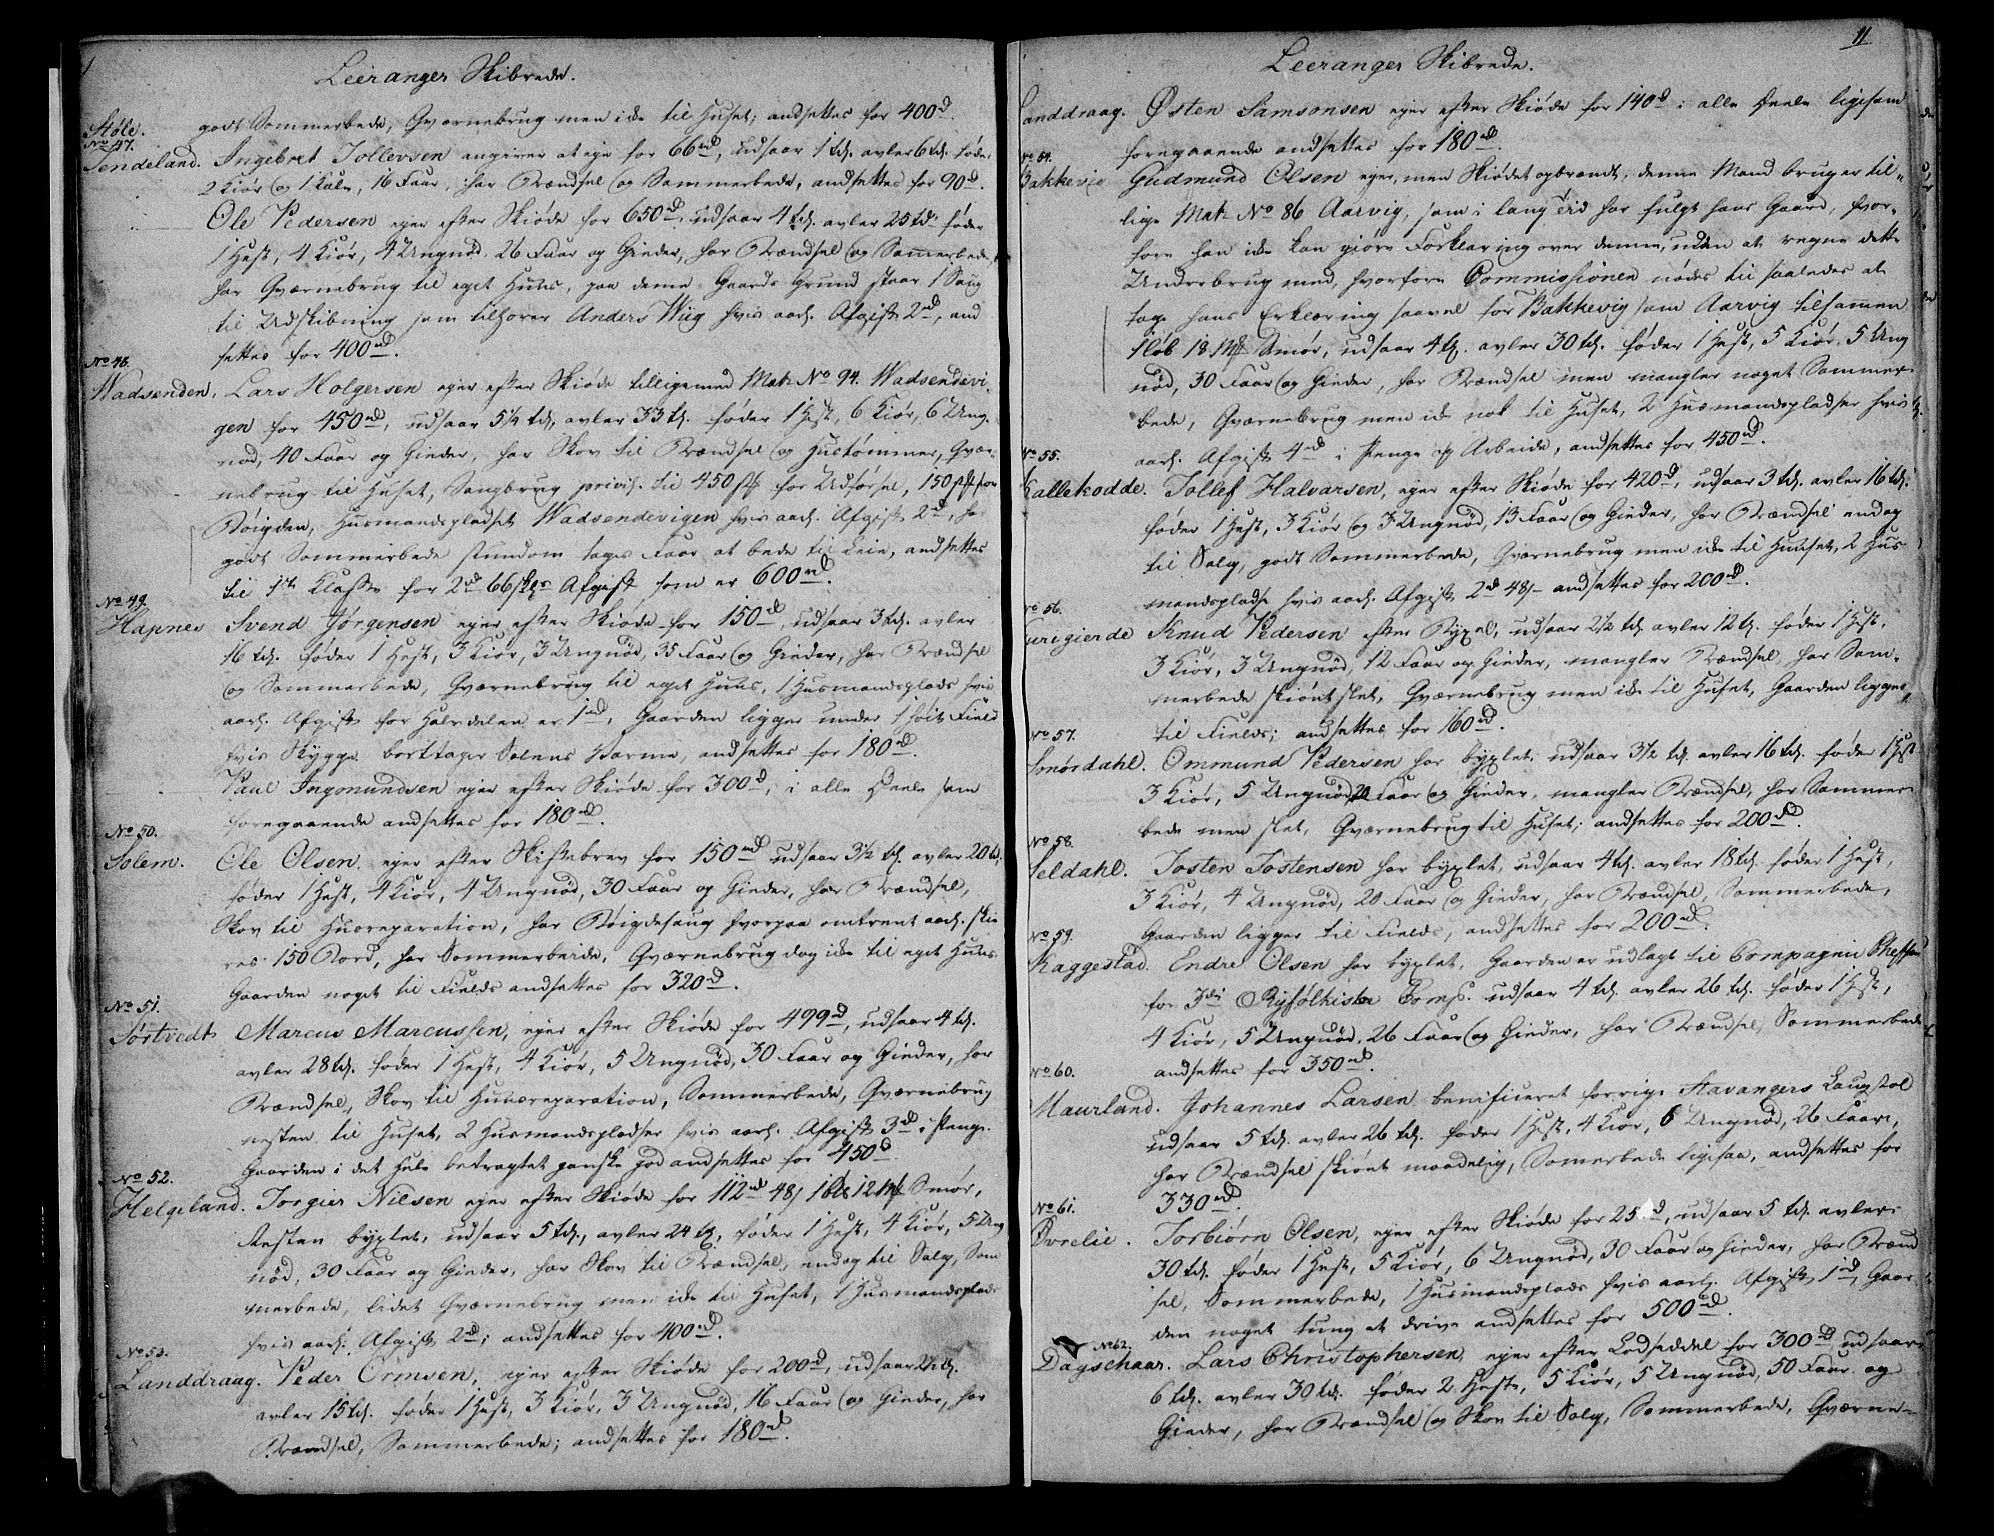 Leeranger Skibrede.
Støle. godt Sommerbede, Qværnebrug men icke til Huset; andsettes for 400d.
No 47.
Tendeland. Ingebret Tollevsen angiver at eje for 66rd, udsaar 1 td. avler 6 td. føder
2 Kiør og 1 Kalv, 16 Faar, har Brændsel og Sommerbede, andsettes for 90d.
Ole Pedersen ejer efter Skiøde for 650d, udsaar 4 td. avler 25 td. føder
1 Hest, 4 Kiør, 4 Ungnød, 26 Faar og Gieder, har Brændsel og Sommerbede,
har Qværnebrug til eget Huus, paa denne Gaards Grund staar 1 Saug
til Udskibning som tilhører Anders Wiig hvis aarl. Afgift 2rd, and
settes for 400rd.
No 48.
Wadsenden, Lars Holgersen ejer efter Skiøde tilligemed Matr No 94. Wadsendevi-
gen for 450rd, udsaar 5 1/2 td, avler 33 td. føder 1 Hest, 6 Kiør, 6 Ung-
nød, 40 Faar og Gieder, har Skov til Brændsel og Hustømmer, Qvær-
nebrug til Huset, Saugbrug privil. til 450 for Udførsel, 150 for
Bøigden, Husmandspladset Wadsendevigen hvis aarl. Afgift 2d, har
godt Sommerbede stundom tages Faar at bede til Leie, andsettes
til 1ste Klasse for 2rd 66 Afgift som er 600rd.
No 49.
Hapnes Svend Jørgensen ejer efter Skiøde for 150rd, udsaar 3 td. avler
16 td. føder 1 Hest, 3 Kiør, 3 Ungnød, 35 Faar og Gieder, har Brændsel
og Sommerbede, Qværnebrug til eget Huus, 1 Husmandsplads hvis
aarl. Afgift for Halvdelen er 1rd, Gaarden ligger under 1 høit Field
hvis Skygge borttager Solens Varme, andsettes for 180rd.
Paul Ingomundsen ejer efter Skiøde for 300d, i alle Deele som
foregaaende andsettes for 180rd.
No 50.
Solem. Ole Olsen, ejer efter Skiftebrev for 150rd udsaar 3 1/2 td. avler 20 td.
føder 1 Hest, 4 Kiør, 4 Ungnød, 30 Faar og Gieder, har Brændsel,
Skov til Husreparation, har Bøigdesaug hvorpaa omtrent aarl. skiæ
res 150 Bord, har Sommerbede, Qværnebrug dog icke til eget Huus
Gaarden noget til Fields andsettes for 320d.
No 51.
Sørtvedt Marcus Marcussen, ejer efter Skiøde for 499d, udsaar 4 td.
avler 28 td. føder 1 Hest, 4 Kiør, 5 Ungnød, 30 Faar og Gieder, har
Brændsel, Skov til Huusreparation, Sommerbede, Qværnebrug
nesten til Huset, 2 Husmandspladser hvis aarl. Afgift 3d i Penge.
Gaarden i det Hele betragtet ganske god andsettes for 450d.
No 52.
Helgeland. Torgier Nilsen ejer efter Skiøde for 112rd 48s 1 12 Smør,
Resten bygslet, udsaar 5 td., avler 24 td, føder 1 Hest, 4 Kiør, 5 Ung
nød, 30 Faar og Gieder, har Skov til Brændsel, endog til Salg, Som
merbede, lidet Qværnebrug men icke til Huset, 1 Husmandsplads
hvis aarl. Afgift 2d; andsettes for 400rd.
No 53.
Landdraag. Peder Ormsen, ejer efter Skiøde for 200d, udsaar td.
avler 15 td. føder 1 Hest, 3 Kiør, 3 Ungnød, 16 Faar og Gieder, har
Brændsel, Sommerbede; andsettes for 180d.
11
Leeranger Skibrede.
Landdraag. Østen Samsonsen ejer efter Skiøde for 140d: alle Deele ligesom
foregaaende andsettes for 180rd.
No 54.
Bakkevig Gudmund Olsen ejer, men Skiødet opbrændt, denne Mand bruger til-
lige Matr No 86 Aarvig, som i lang Tid har fulgt hans Gaard, hvor-
fore han icke kan giøre Forklaring over denne, uden at regne dette
Underbrug med, hvorfore Commissionen nødes til saaledes at
tage hans Erklæring saavel for Bakkevig som Aarvig tilsamen
1 løb 18 Smør, udsaar 4 td. avler 30 td. føder 1 Hest, 5 Kiør, 5 Ung
nød, 30 Faar og Gieder, har Brændsel men mangler noget Sommer
bede, Qværnebrug men icke nok til Huset, 2 Husmandspladser hvis
aarl. Afgift 4rd i Penge og Arbeide, andsettes for 450rd.
No 55.
Kallekodde. Tollef Halvarsen, ejer efter Skiøde for 420d, udsaar 3 td. avler 16 td.
føder 1 Hest, 3 Kiør og 3 Ungnød, 13 Faar og Gieder, har Brændsel endog
til Salg, godt Sommerbede, Qværnebrug men icke til Huuset, 2 Hus
mandspladse hvis aarl. Afgift 2d 48s andsettes for 200rd.
No 56.
Furigierde Knud Pedersen efter Bygsel, udsaar 2 1/2 td avler 12 td. føder 1 Hest,
3 Kiør, 3 Ungnød, 12 Faar og Gieder, mangler Brændsel, har Som-
merbede skiønt slet, Qværnebrug men icke til Huset, Gaarden ligger
til Fields; andsettes for 160rd.
No 57.
Smørdahl. Ommund Pedersen har bygslet, udsaar 3 1/2 td avler 16 td. føder 1 Hest
3 Kiør, 5 Ungnød, 20 Faar og Gieder, mangler Brændsel, har Sommer
bede men slet, Qværnebrug til Huset; andsettes for 200rd.
No 58.
Seldahl. Tosten Tostensen har bygslet, udsaar 4 td. avler 18 td. føder 1 Hest,
3 Kiør, 4 Ungnød, 20 Faar og Gieder, har Brændsel, Sommerbede,
Gaarden ligger til Fields, andsettes for 200rd.
No 59.
Kaggestad. Endre Olsen har bygslet, Gaarden er udlagt til Compagnie Cheffen
for 3die Ryfølkiske Comp. udsaar 4 td. avler 26 td. føder 1 Hest,
4 Kiør, 5 Ungnød, 26 Faar og Gieder, har Brændsel, Sommerbede
andsettes for 350rd.
No 60.
Maurland. Johannes Larsen benificeret forrige Stavangers Laugstol
udsaar 5 td. avler 26 td. føder 1 Hest, 4 Kiør, 6 Ungnød, 26 Faar,
har Brændsel skiønt maadelig, Somerbede ligesaa, andsettes for
330rd.
No 61.
Torbiørn Olsen, ejer efter Skiøde for 25 d, udsaar 5 td. avler
30 td. føder 1 Hest, 5 Kiør, 6 Ungnød, 30 Faar og Gieder, har Brænd
sel, Sommerbede, 1 Husmandsplads hvis aarl. Afgift 1d, Gaar
den noget tung at drive andsettes for 500rd.
No 62.
Dagschaar. Lars Christophersen, ejer efter Lodseddel for 300rd udsaar
6 td. avler 30 td. føder 2 Heste, 5 Kiør, 5 Ungnød, 50 Faar og
Gieder, har Brændsel og Skov til Salg, Sommerbede, Qværne-